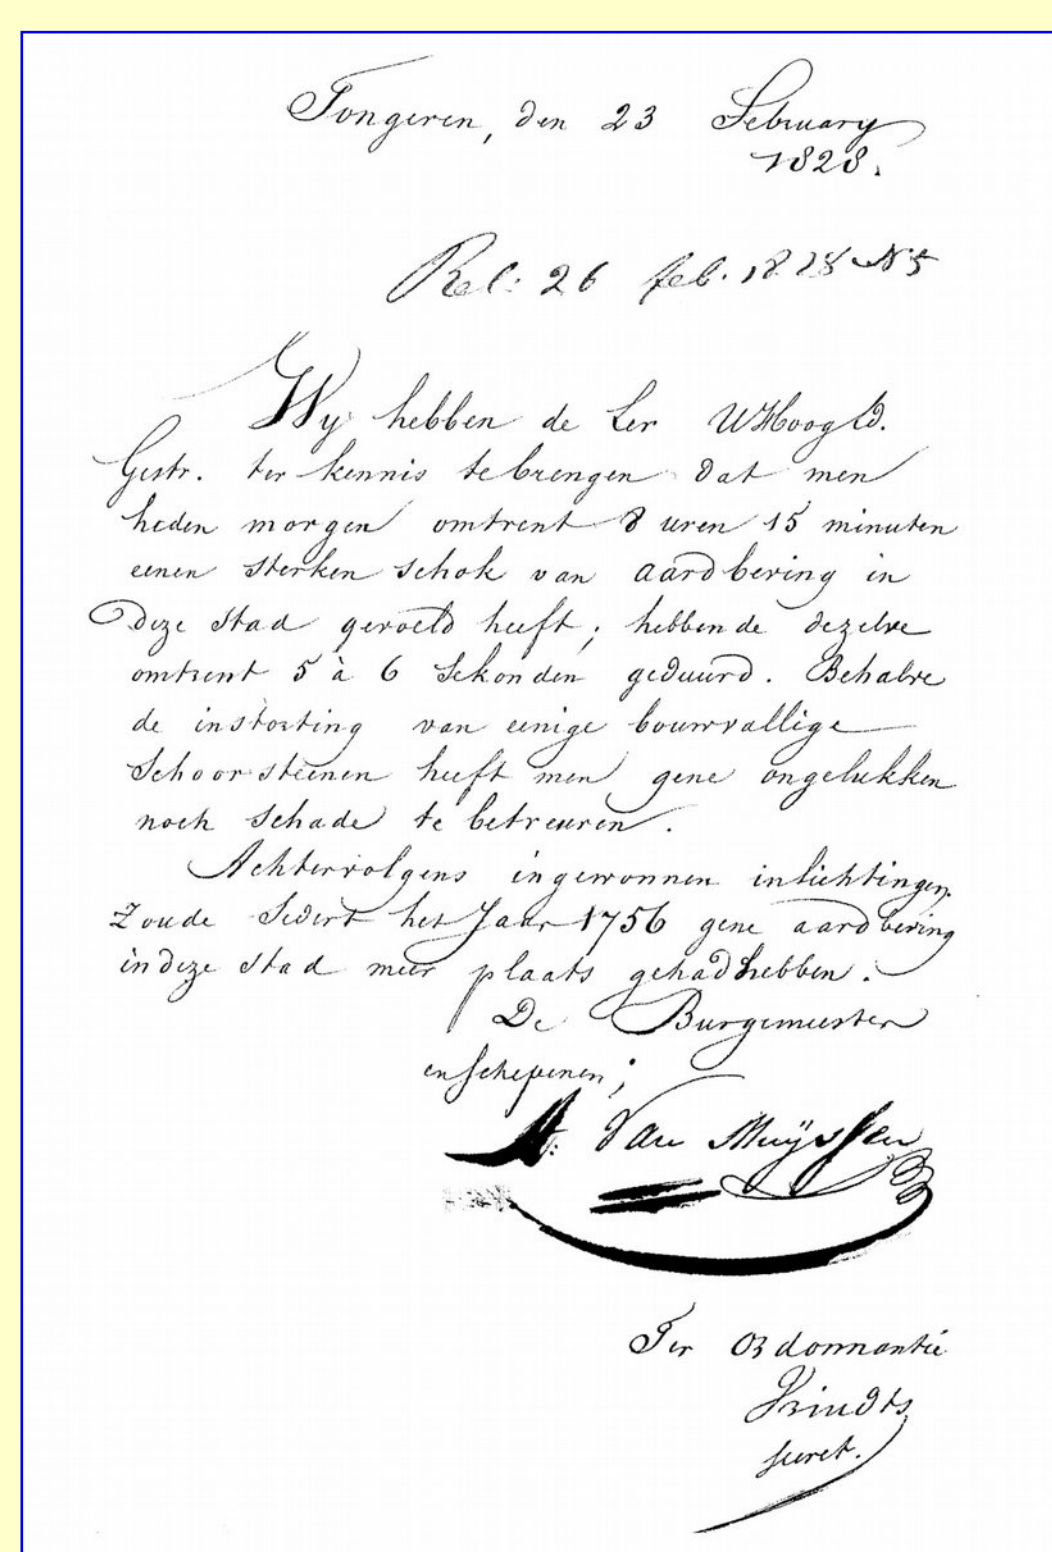 Tongeren, den 23 February
1828.
Rel: 26 feb. 1828 N 5
Wy hebben de Eer UHoogEd.
Gestr. ter kennis te brengen dat men
heden morgen omtrent 8 uren 15 minuten
eenen sterken schok van aardbeving in
deze stad gevoeld heeft; hebbende dezelve
omtrent 5 à 6 Sekonden geduurd. Behalve
de instorting van eenige bouwvallige
Schoorsteenen heeft men gene ongelukken
noch Schade te betreuren.
Achtervolgens ingewonnen inlichtingen
Zoude Sedert het Jaar 1756 gene aardbeving
in deze stad meer plaats gehad hebben.
De Burgemeester
en Schepenen;
Van Muyssen
Ter Ordonnantie
secret.